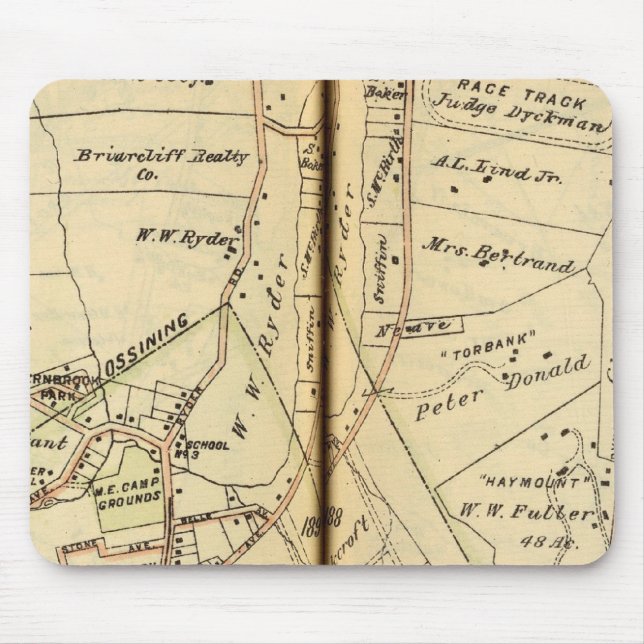 RACE TRACK
Judge Dyckman
Baker
Briarcliff Realty
Co.
S.
Baker
S. McBirth
A. L. Lind Jr.
W. W. Ryder
RD.
Sniffin
W. W. Ryder
S. McBirth
Sniffin
W. W. Ryder
Mrs. Bertrand
OSSINING
Neave
"TORBANK"
Peter Donald
RNBROOK
PARK
RYDER
SCHOOL
No. 3
M.E. CAMP
GROUNDS
AVE.
BELLE
AV.
STONE AVE.
"HAYMOUNT"
W. W. Fuller
48 Ac.
188
croft